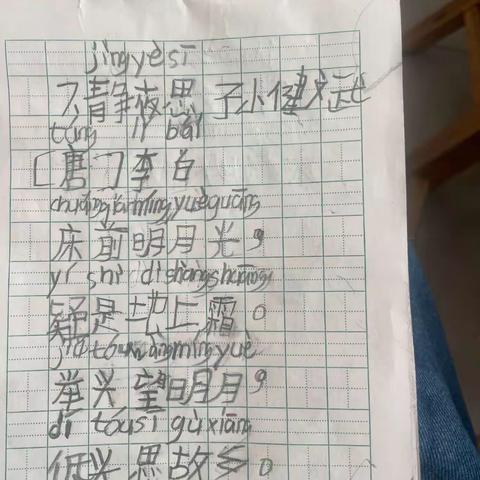 jìngyèsī
静夜思 子小健
táng lǐ bái
[唐]李白
chuángqiánmíngyuèguāng
床前明月光，
yí shì dìshàngshuāng
疑是地上霜。
jǔtóuwàngmíngyuè
举头望明月，
dī tóusī gùxiāng
低头思故乡。